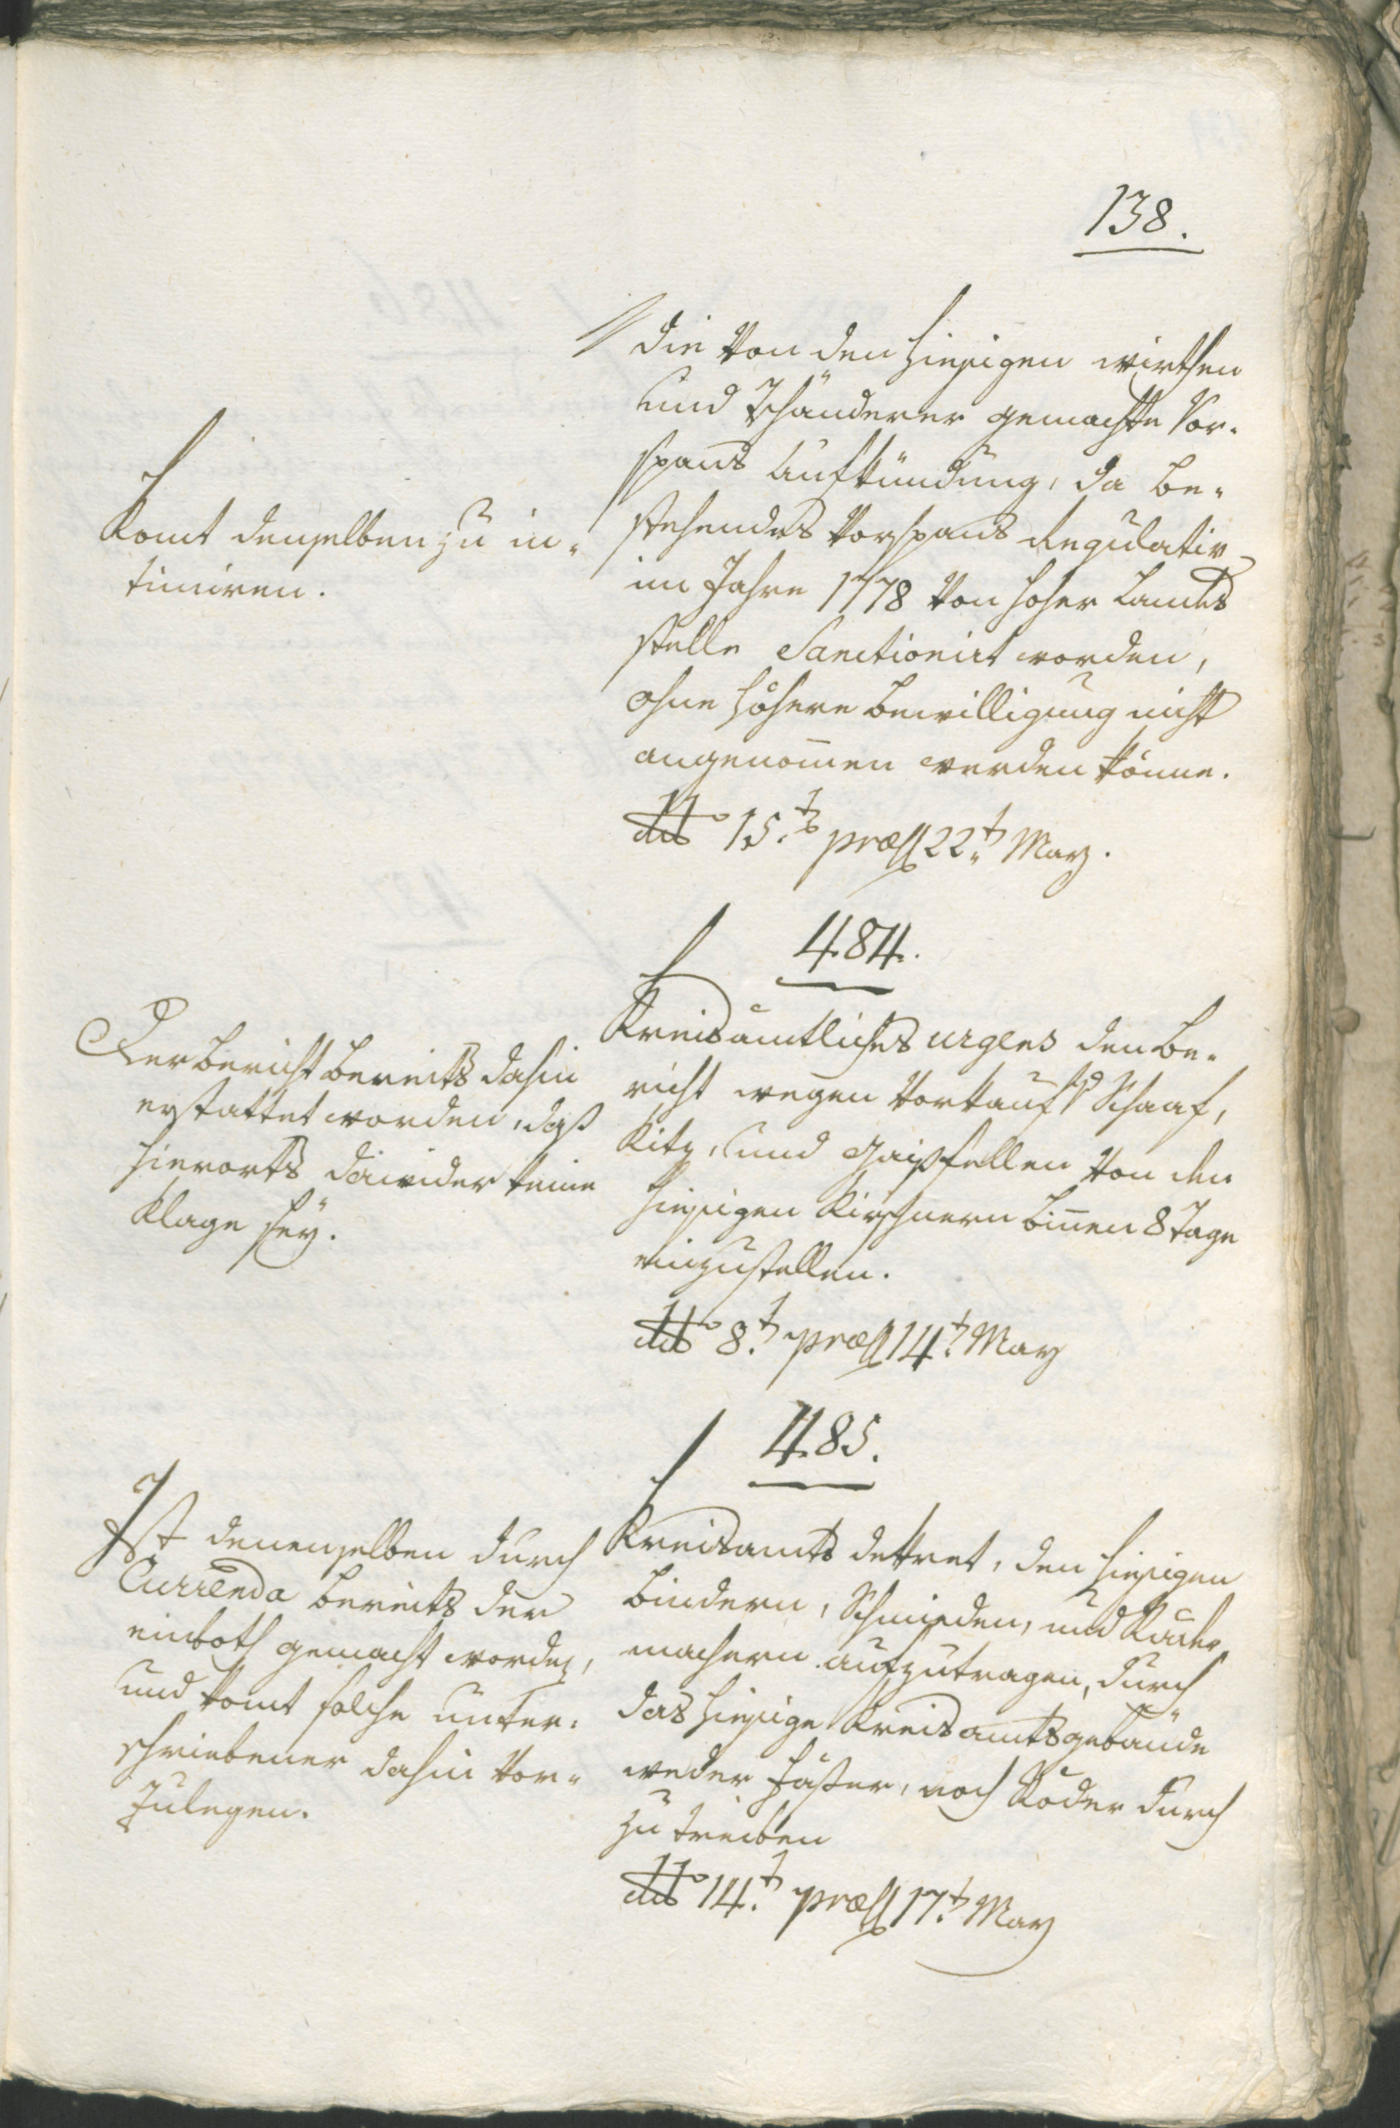 138.
die von den hiesigen wirthen
und Pfänderer gemachte Vor-
spans Aufkündung, da be-
stehendes Vorspans Regulativ
im Jahre 1778 von hoher Landes
stelle Sanctionirt worden,
ohne höhere bewilligung nicht
angenom̄en werden könne.
ddto 15.ts præs 22.t May.
Komt denselben zu in-
timiren.
484.
Kreisämtliches urgens den be-
richt wegen Vorkauf der Schaaf,
Kitz, und Gaisfellen von den
hiesigen Kirschnern bin̄en 8 Tage
einzustellen.
ddto 8.t præs 14.t May
Der bericht bereits dahin
erstattet worden, daß
hierorts dawider keine
Klage seÿ.
485.
Kreisamts dekret, den hiesigen
bindern, Schmieden, und Räder
machern aufzutragen, durch
das hiesige Kreisamtsgebäude
weder Fäßer, noch Räder durch
zu treiben
ddto 14.t præs 17.t May
Ist denenselben durch
Currenda bereits der
einboth gemacht worden,
und komt solche unter-
schriebener dahin vor-
zulegen.